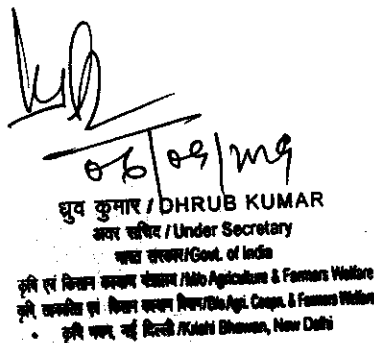 06/09/2019
ध्रुव कुमार / DHRUB KUMAR
अवर सचिव / Under Secretary
भारत सरकार/Govt. of India
कृषि एवं किसान कल्याण मंत्रालय /M/o Agriculture & Farmers Welfare
कृषि, सहकारिता एवं किसान कल्याण विभाग/D/o Agri. Coopn. & Farmers Welfare
कृषि भवन, नई दिल्ली /Krishi Bhawan, New Delhi